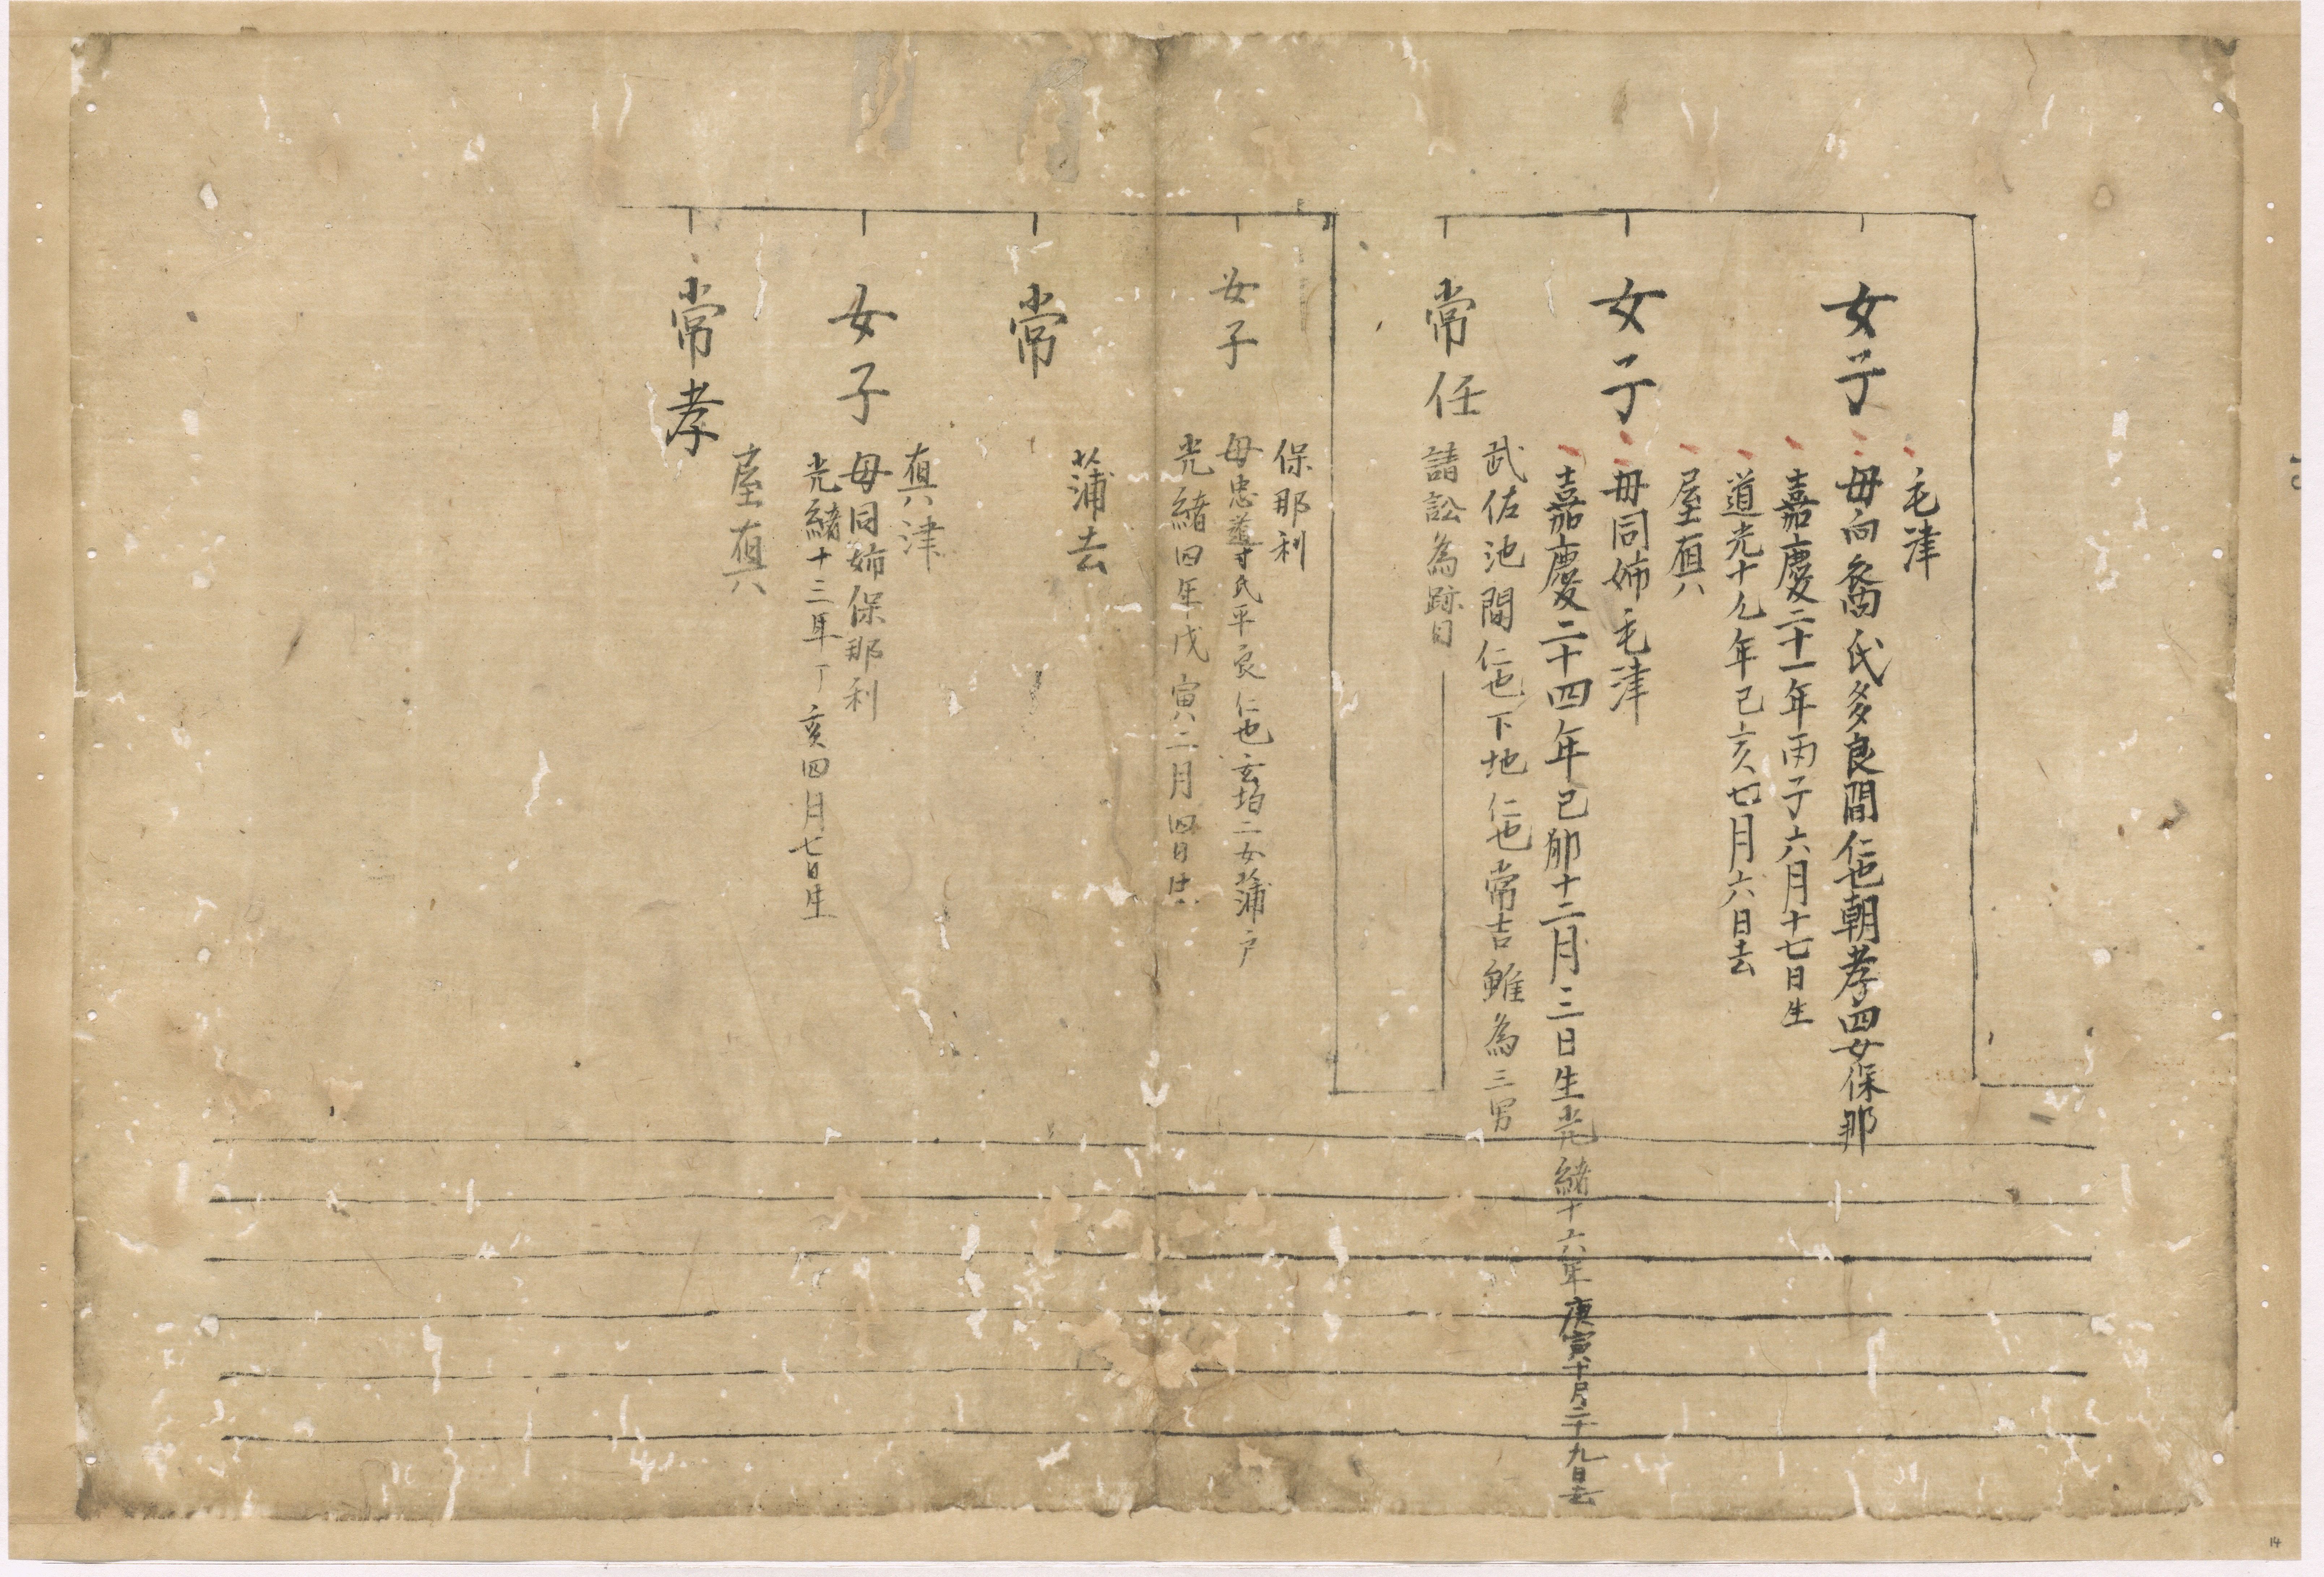 女子
毛津
母向裔氏多良間仁也朝孝四女保那
嘉慶二十一年丙子六月十七日生
道光十九年己亥七月六日去
女子
屋真
母同姉毛津
嘉慶二十四年己卯十二月三日生光緒十六年庚寅十月二十九日去
常任
武佐池間仁也下地仁也常吉雖為三男
請訟為跡目
女子
保那利
母忠導氏平良仁也玄均二女蒲戸
光緒四年戊寅二月四日生
常
蒲去
女子
真津
母同姉保那利
光緒十三年丁亥四月七日生
常孝
屋真
14